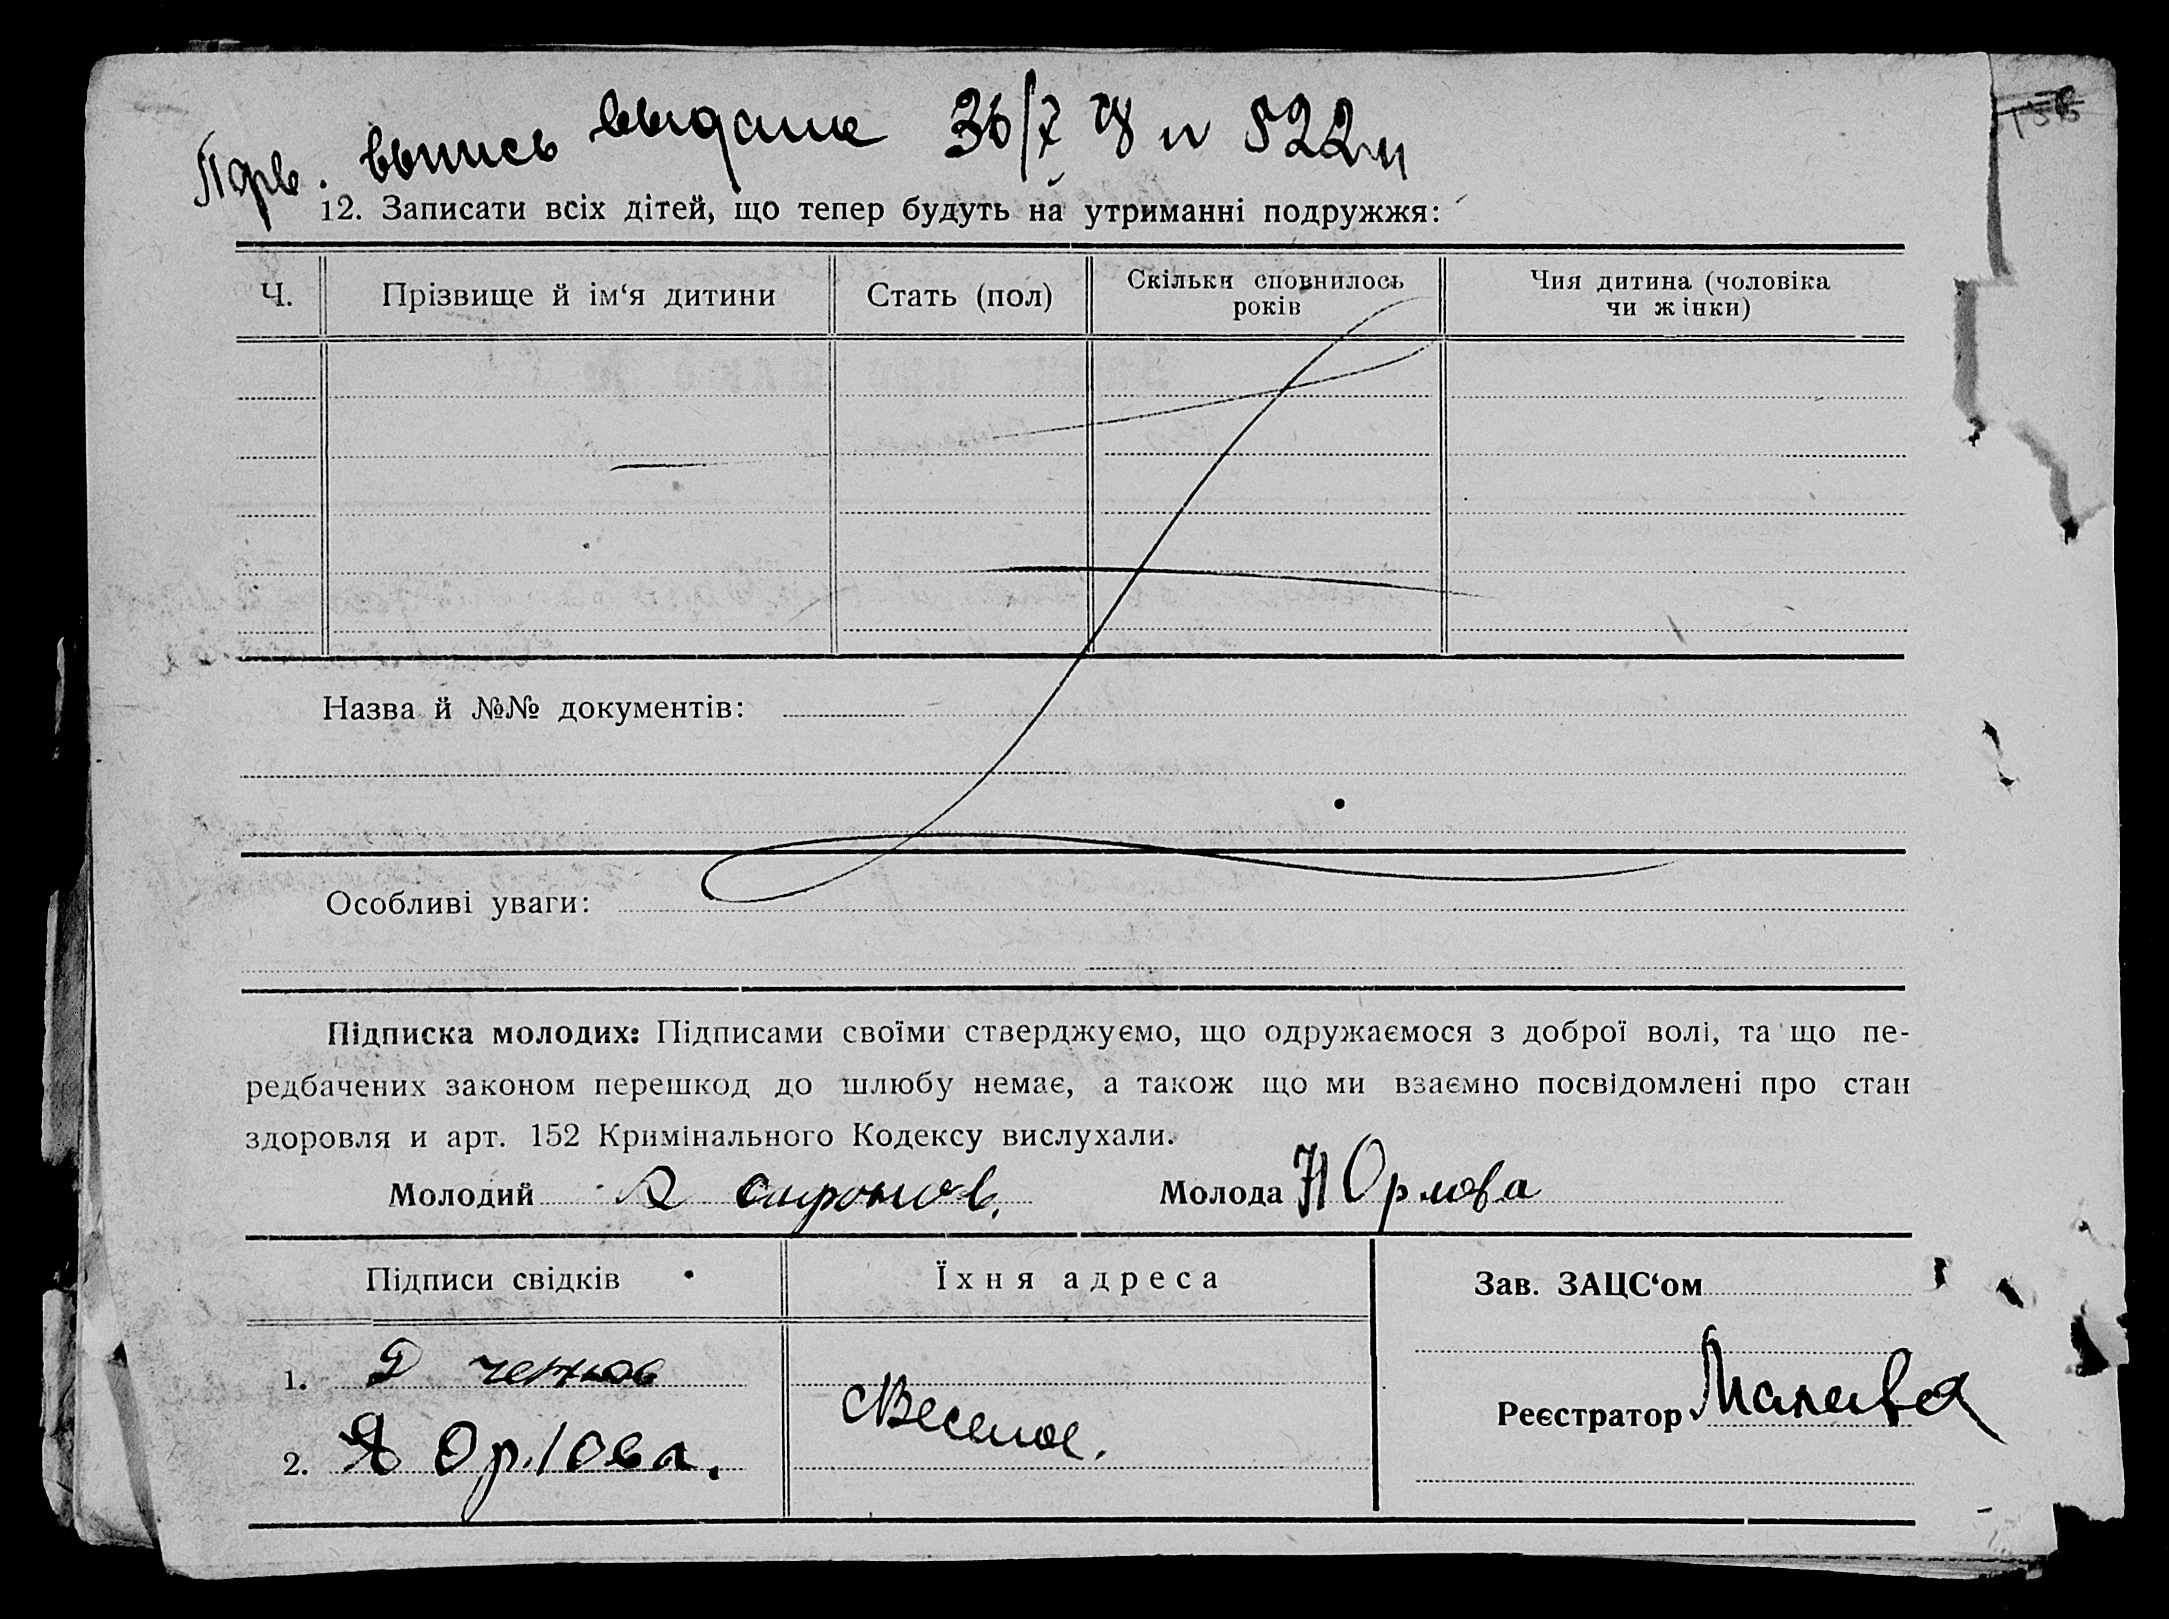 выпись выдана
12. Записати всіх дітей, що тепер будуть на утриманні подружжя:
Ч. Прізвище й ім‘я дитини Стать (пол) Скільки сповнилось років Чия дитина (чоловіка чи жінки)
Назва й №№ документів:
Особливі уваги:
Підписка молодих: Підписами своїми стверджуємо, що одружаємося з доброї волі, та що пе-
редбачених законом перешкод до шлюбу немає, а також що ми взаємно посвідомлені про стан
здоровля и арт. 152 Кримінального Кодексу вислухали.
Молодий Молода Н Орлова
Підписи свідків Їхня адреса Зав. ЗАЦС‘ом
1. Чернов
2. Я Орлова. Веселое. Реєстратор